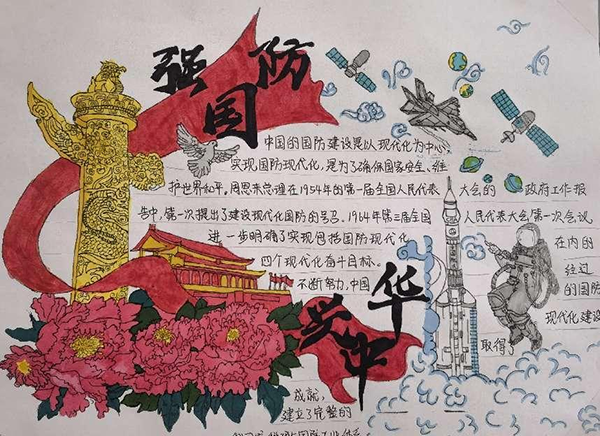 强国防
中国的国防建设是以现代化为中心，
实现国防现代化，是为了确保国家安全、维
护世界和平。周恩来总理在1954年的第一届全国人民代表 大会的 政府工作报
告中，第一次提出了建设现代化国防的号召。1964年第三届全国 人民代表大会第一次会议
进一步明确了实现包括国防现代化 在内的
四个现代化奋斗目标。 经过
不断努力，中国 的国防
现代化建设
取得了
兴中华
成就，
建立了完整的